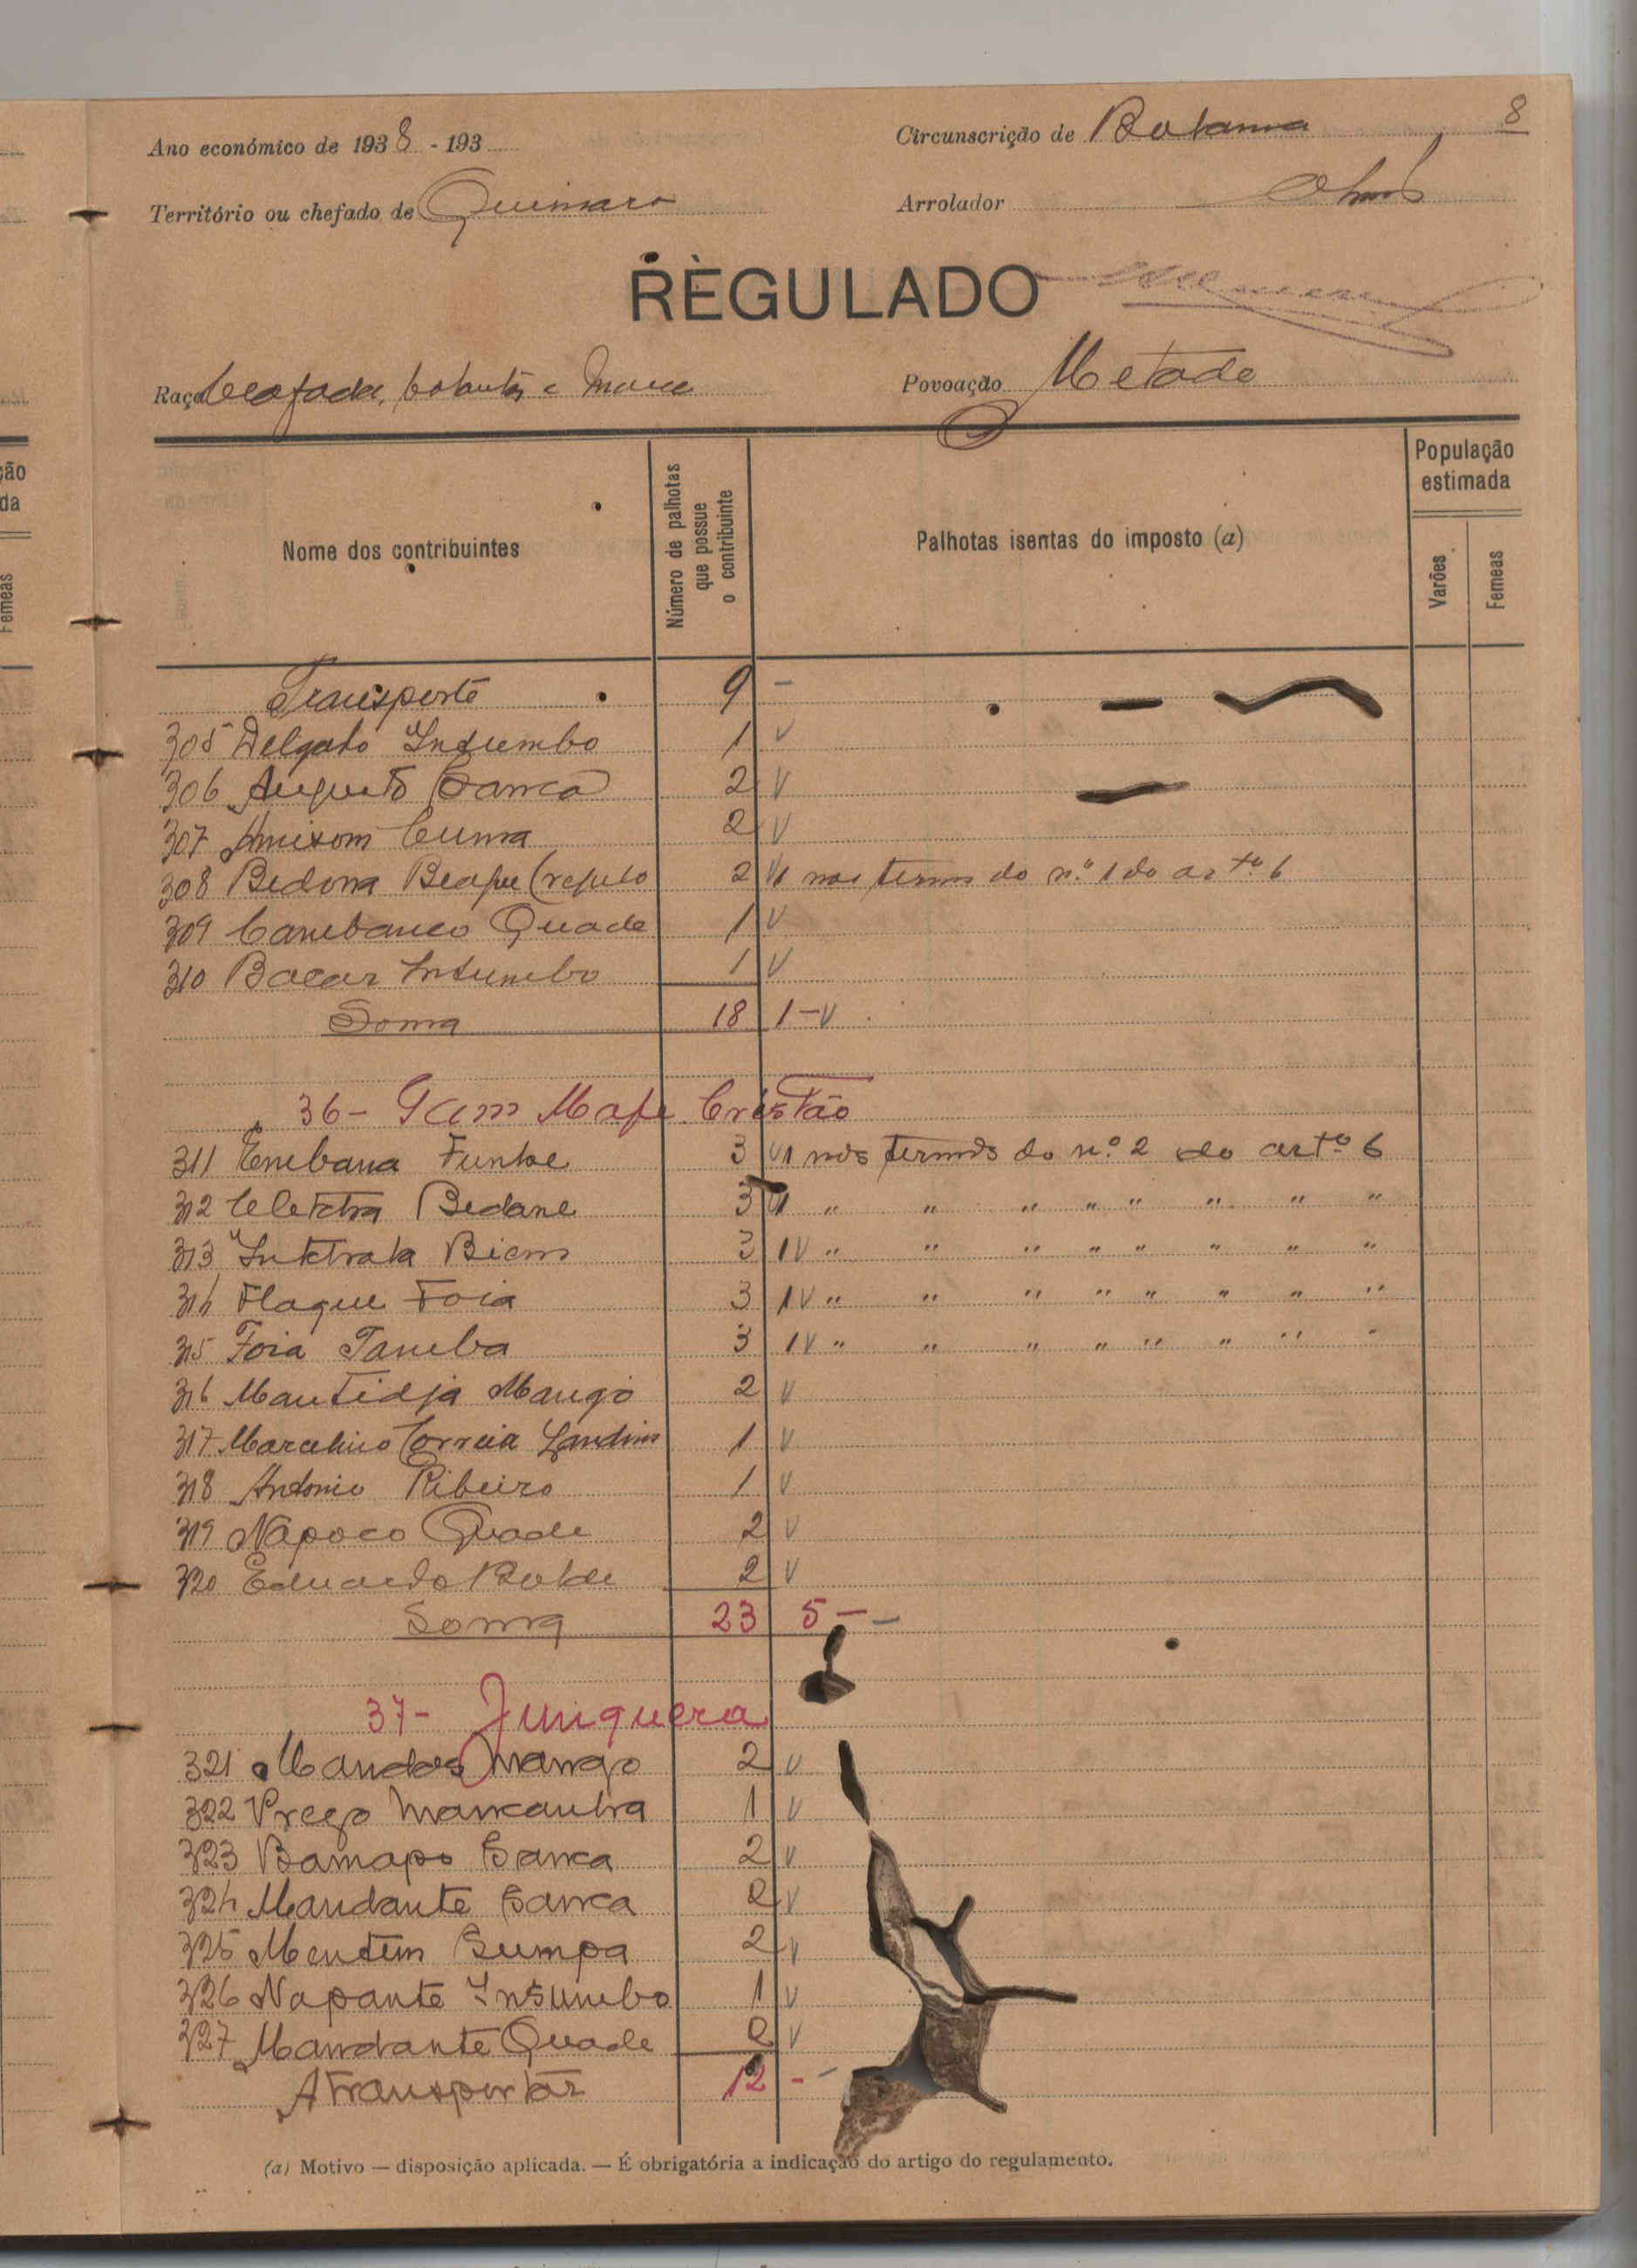 8
Ano económico de 1938 - 193
Circunscrição de Bolama
Território ou chefado de Quinara
Arrolador
REGULADO
Raça Beafada,
Povoação Metade
Nome dos contribuintes
Número de palhotas que possue o contribuinte
Palhotas isentas do imposto (a)
População estimada
Varões
Femeas
Transporte 9 -
305 Delgado Insumbo 1 V
306 Augusto Sanca 2 V
307 Cuma 2 V
308 Bedona Beapu 2 V1 nos termos do n.º 1 do artº 6
309 Canebanco Quade 1 V
310 Bacar Insumbo 1 V
Soma 18 1-V
36- Gam Mape Cristão
311 Enebana Funke 3 V1 nos termos do n.º 2 do artº 6
312 Bedane 3 V1 " " " " " " " "
313 Biem 3 1V " " " " " " " "
314 Flaque Foia 3 1V " " " " " " " "
315 Foia Taneba 3 1V " " " " " " " "
316 Mantidja Mango 2 V
317 Marcelino Correia Landim 1 V
318 Antonio Ribeiro 1 V
319 Napoco Quade 2 V
320 Eduardo 2 V
Soma 23 5 - -
37- Junquera
321 Mandos Mango 2 V
322 Prego Mancantra 1 V
323 Bamapo Sanca 2 V
324 Mandante Sanca 2 V
325 Mentem Sumpa 2 V
326 Napante Insumbo 1 V
327 Mandante Quade 2 V
A transportar 12 - -
(a) Motivo — disposição aplicada. — É obrigatória a indicação do artigo do regulamento.
ção
da
Femeas